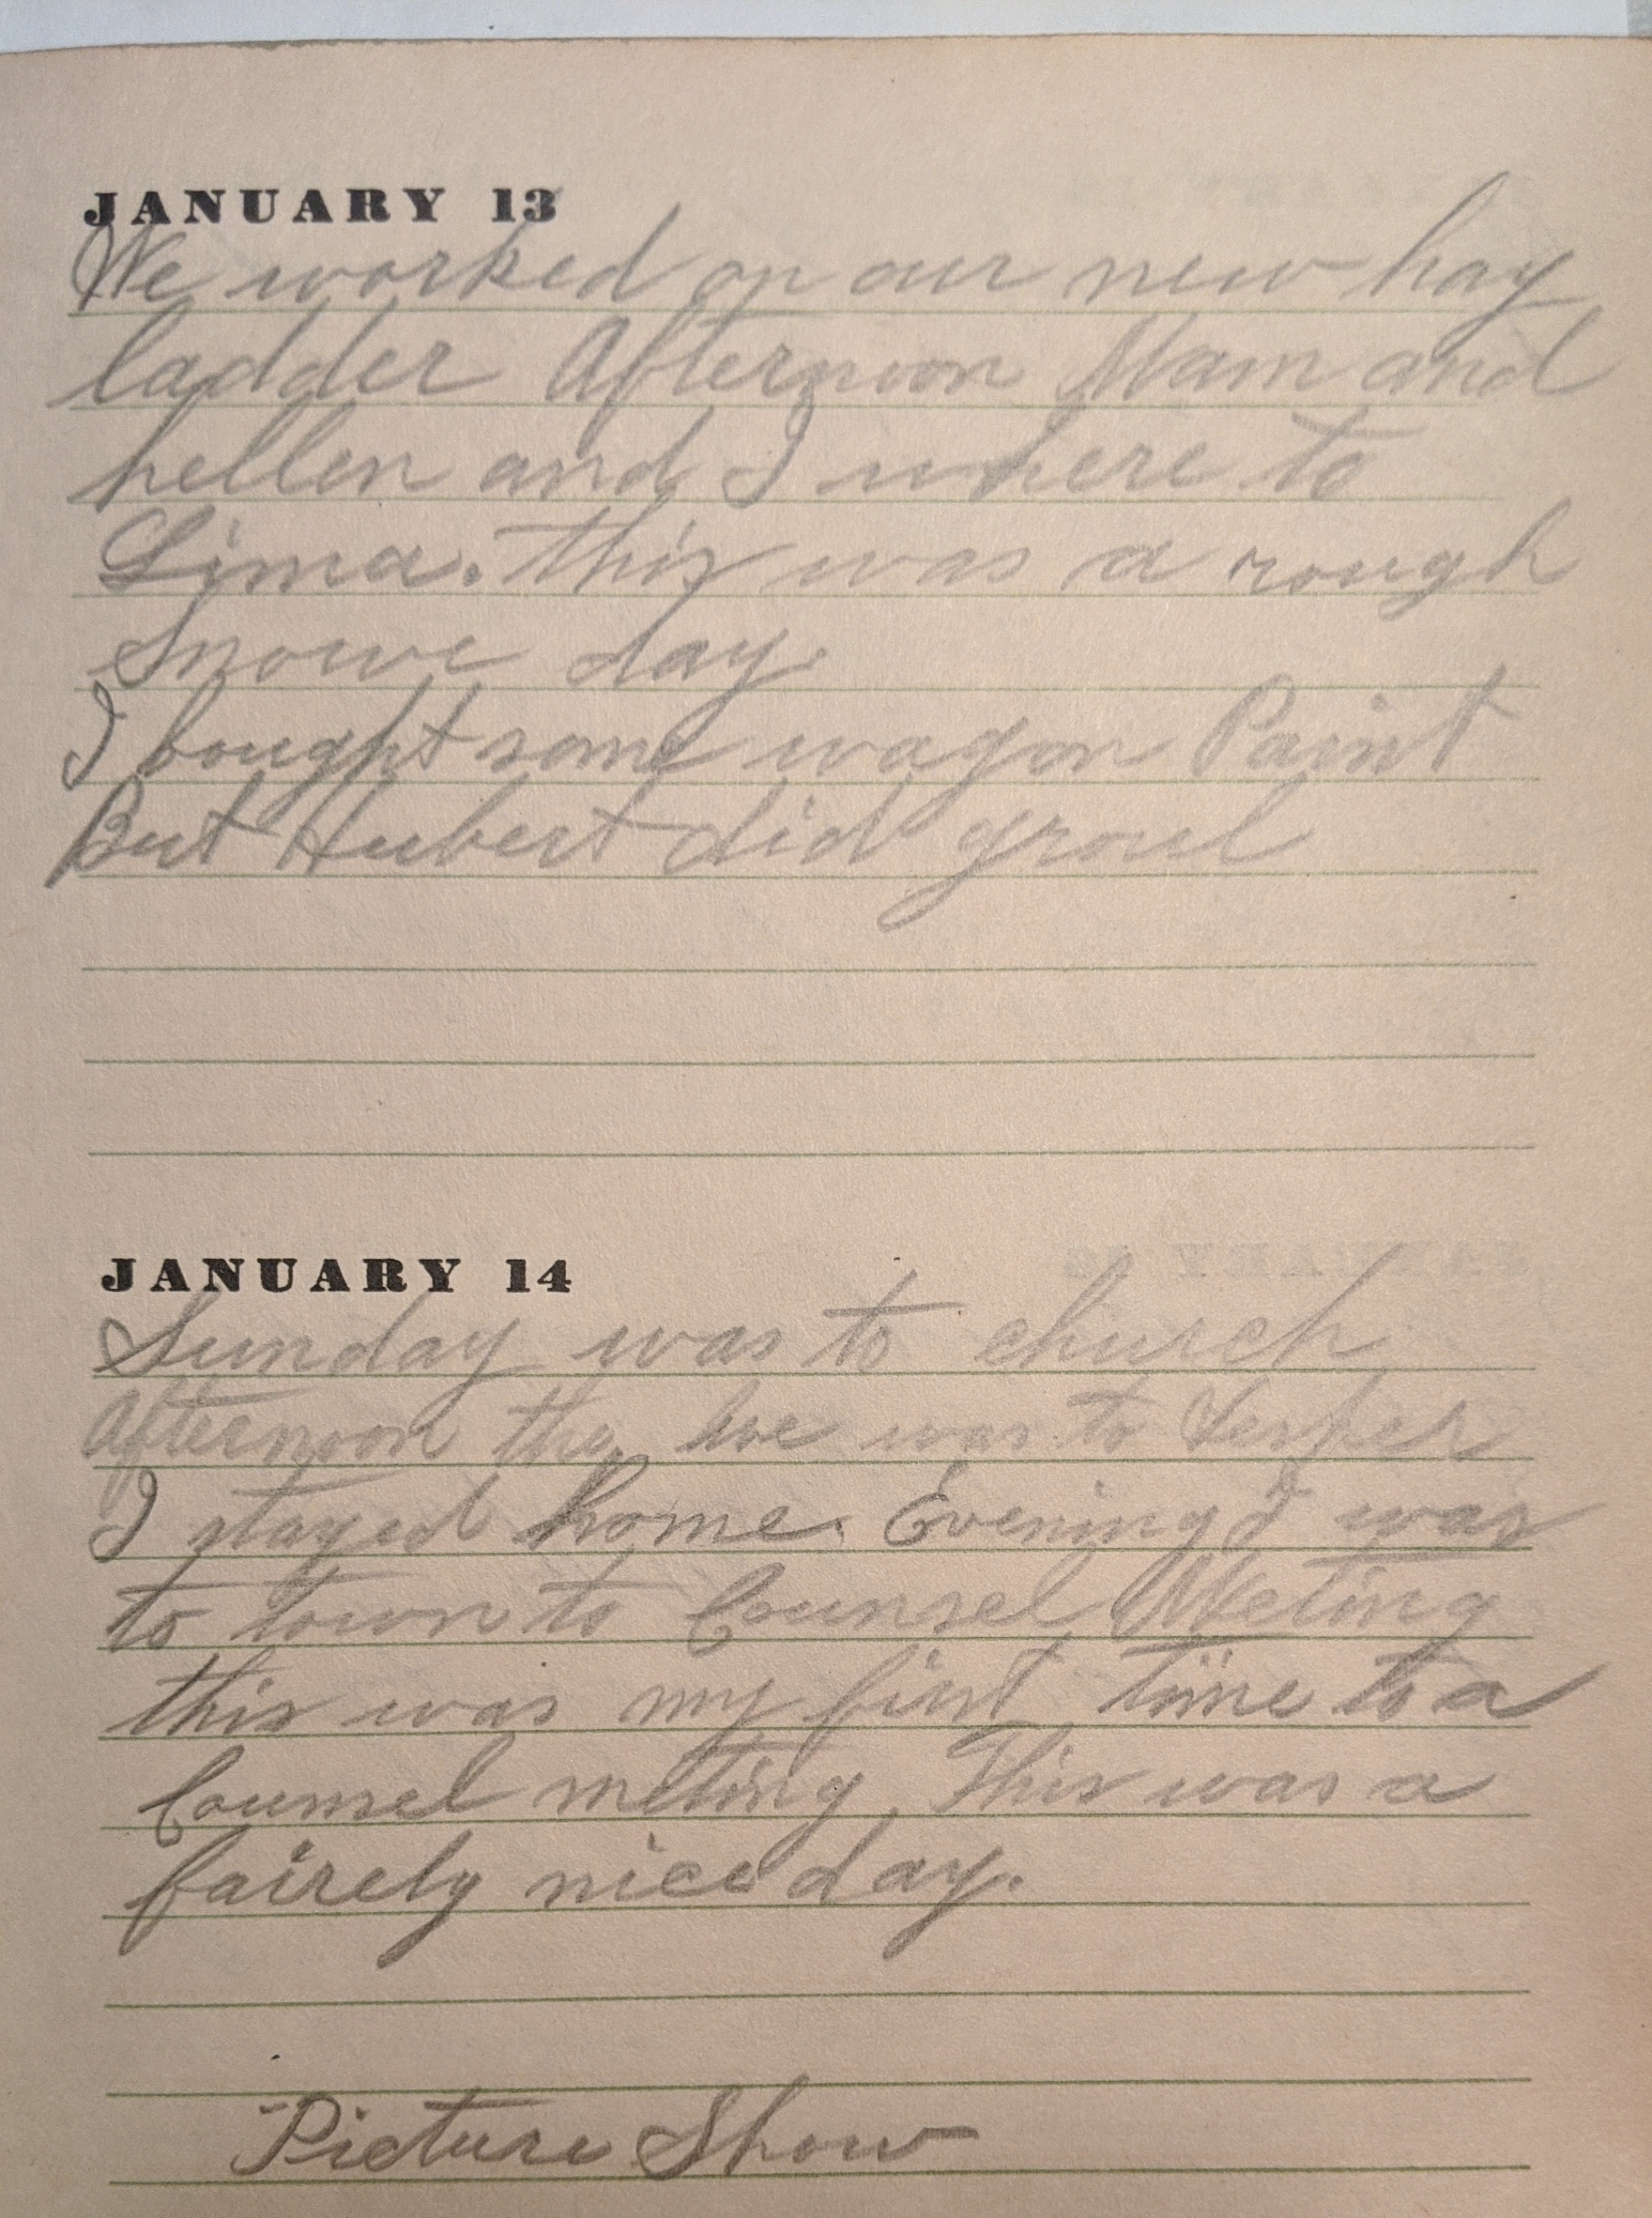 JANUARY 13
We worked on our new hay
ladder Afternoon Mam and
hellen and I where to
Lima. this was a rough
Snowe day.
I bought some wagon Paint
But Hubert did groul
JANUARY 14
Sunday was to church
Afternoon the was to
I stayed home. Evening I was
to town to Counsel Meting
this was my first time to a
Counsel meting. This was a
fairely nice day.
Picture Show